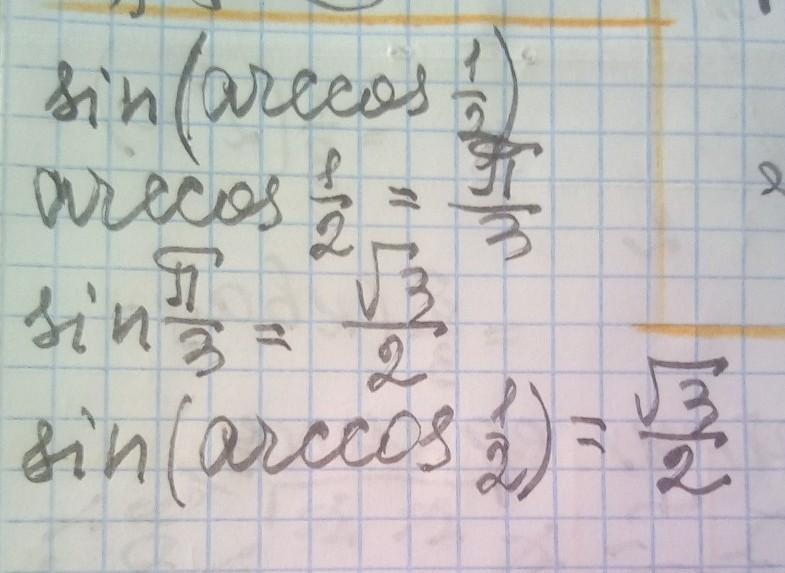 sin(arccos 1/2)
arccos 1/2 = π/3
sin π/3 = √3/2
sin(arccos 1/2) = √3/2